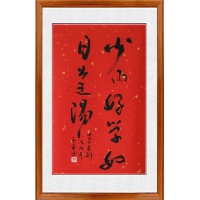 少而好学如
日出之陽